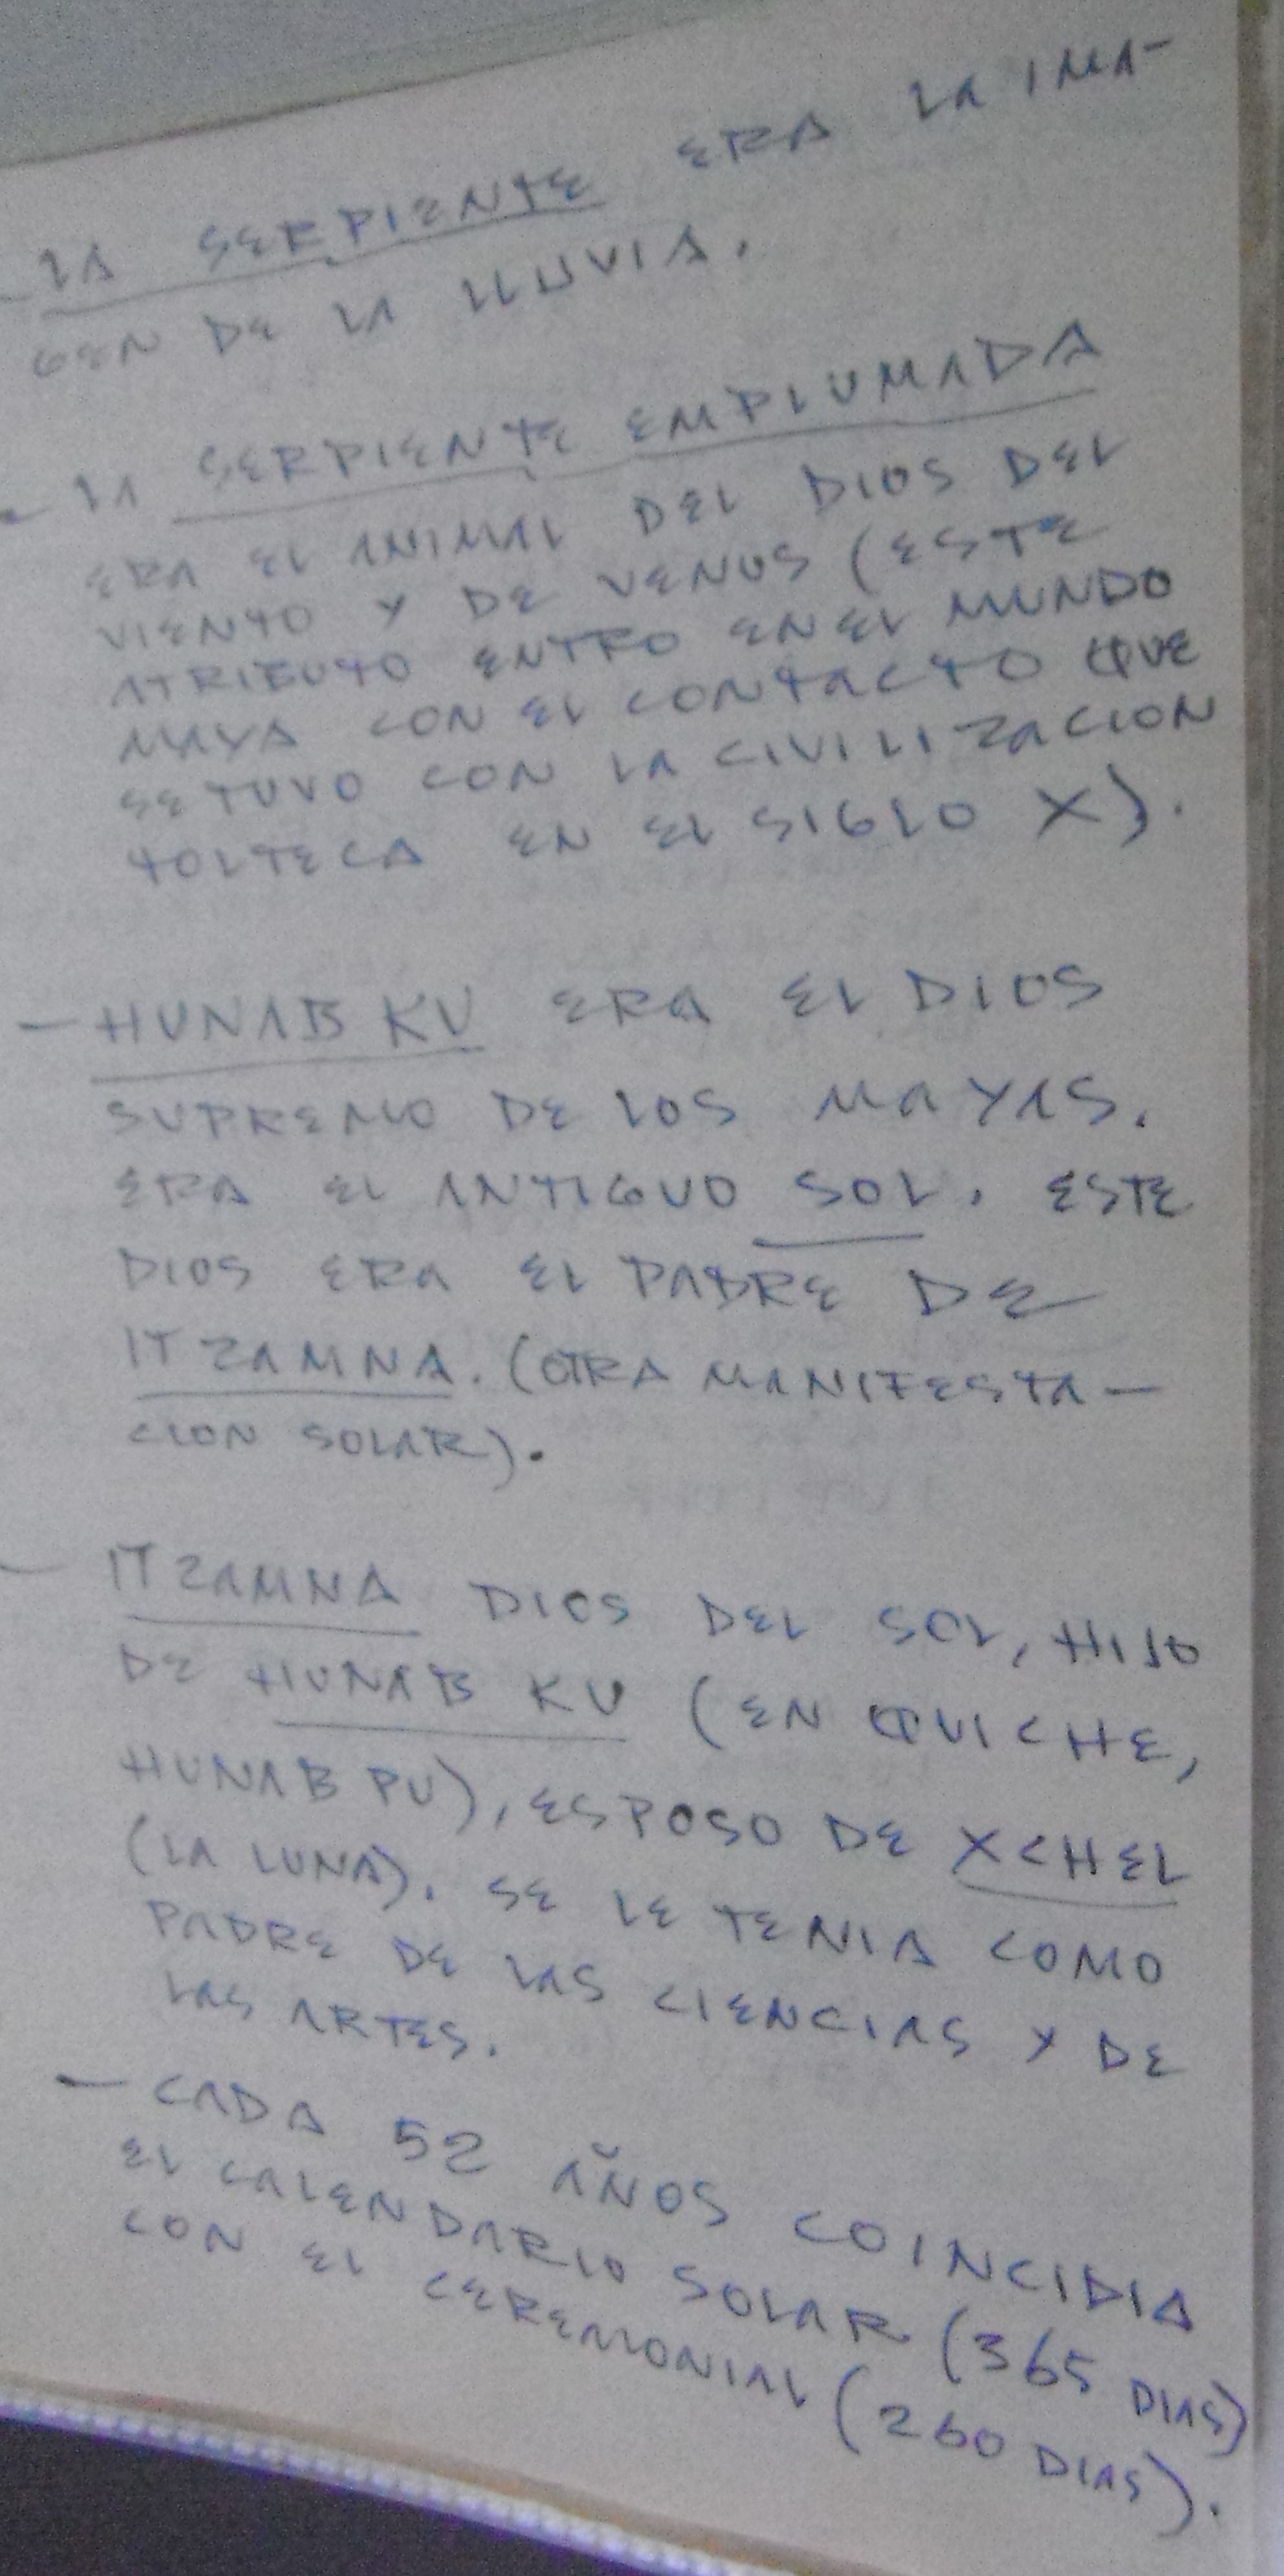 - LA SERPIENTE ERA LA IMA-
GEN DE LA LLUVIA.
- LA SERPIENTE EMPLUMADA
ERA EL ANIMAL DEL DIOS DEL
VIENTO Y DE VENUS (ESTE
ATRIBUTO ENTRO EN EL MUNDO
MAYA CON EL CONTACTO QUE
SE TUVO CON LA CIVILIZACION
TOLTECA EN EL SIGLO X).
- HUNAB KU ERA EL DIOS
SUPREMO DE LOS MAYAS.
ERA EL ANTIGUO SOL. ESTE
DIOS ERA EL PADRE DE
ITZAMNA. (OTRA MANIFESTA-
CION SOLAR).
- ITZAMNA DIOS DEL SOL, HIJO
DE HUNAB KU (EN QUICHE,
HUNAB PU), ESPOSO DE XCHEL
(LA LUNA). SE LE TENIA COMO
PADRE DE LAS CIENCIAS Y DE
LAS ARTES.
- CADA 52 AÑOS COINCIDIA
EL CALENDARIO SOLAR (365 DIAS)
CON EL CEREMONIAL (260 DIAS).